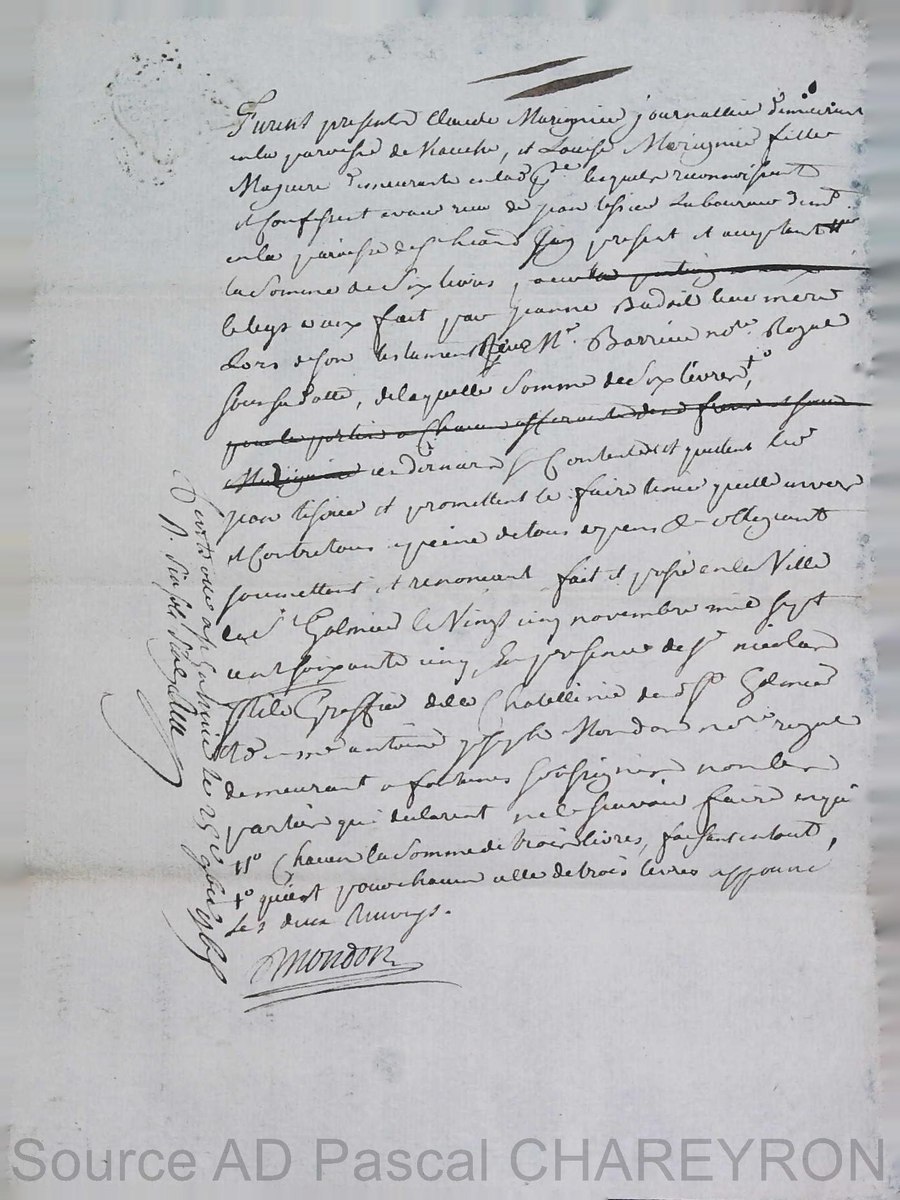 Furent presents Claude Marignier journallier demeurant
en la paroisse de , et Louise Marignier fille
Majeure demeurante en lad. psse lesquels reconnoissent
et confessent avoir reçu de jean tissier Laboureur dem.t
en la paroisse de St heand present et acceptant
la Somme de Six livres
le legs a eux fait par jeanne leur mère
Lors de son testament Reçu Me. Barrieu nore. Royal
sous sa datte, de laquelle Somme de Six livres, +o
Marignier en dernier Contents et quittent led.
jean tissier et promettent le faire tenir quitte envers
et contre tous a peine de tous depens &c obligeant
soumettant et renonçant fait et passé en la Ville
de St Galmier le Vingt cinq novembre mil sept
cent soixante cinq, En presence de Sr. nicolas
Greffier de la Chatellenie de St Galmier
et de me antoine joseph Mondon nore royal
demeurant a fontanes Soussignés non les
parties qui declarent ne le sçavoir faire enquis
Chacun la Somme de trois livres, faisant en tout,
+o qui est pour chacun celle de trois livres approuvé
les deux Renvoys.
Mondon
a St Galmier le 25e 9bre 1765
R. Six sols
Source AD Pascal CHAREYRON